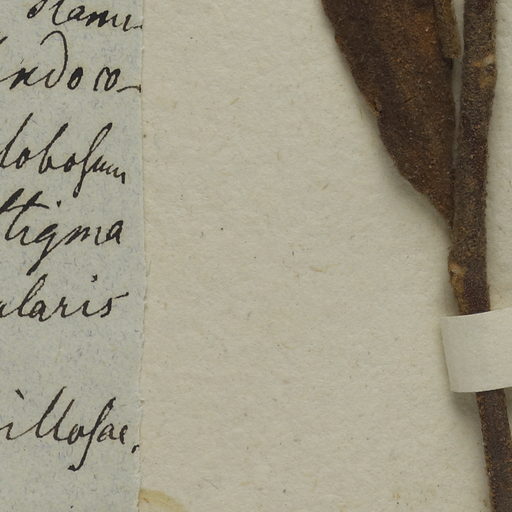 Stami-
ndoco-
lobosum
Stigma
ularis
illosae.